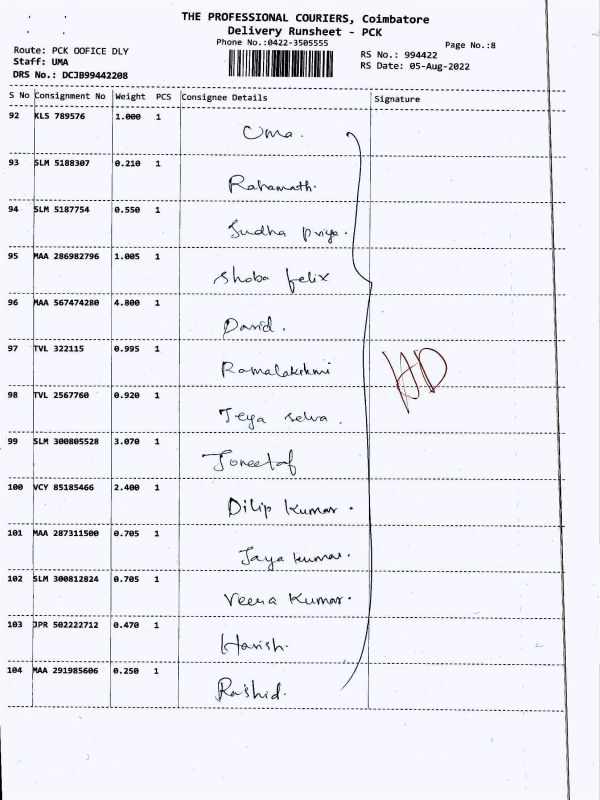 THE PROFESSIONAL COURIERS, Coimbatore
Delivery Runsheet - PCK
Phone No.:0422-3505555
Page No.:8
Route: PCK OOFICE DLY
Staff: UMA
DRS No.: DCJB99442208
RS No.: 994422
RS Date: 05-Aug-2022
S No Consignment No Weight PCS Consignee Details Signature
92 KLS 789576 1.000 1 Uma.
93 SLM 5188307 0.210 1 Rahamath.
94 SLM 5187754 0.550 1 Sudha priya.
95 MAA 286982796 1.005 1 Shoba felix
96 MAA 567474280 4.800 1 David.
97 TVL 322115 0.995 1 Ramalakshmi
98 TVL 2567760 0.920 1 Jeya selva.
99 SLM 300805528 3.070 1
100 VCY 85185466 2.400 1 Dilip Kumar.
101 MAA 287311500 0.705 1 Jaya kumar.
102 SLM 300812824 0.705 1 Veera Kumar.
103 JPR 502222712 0.470 1 Harish.
104 MAA 291985606 0.250 1 Rashid.